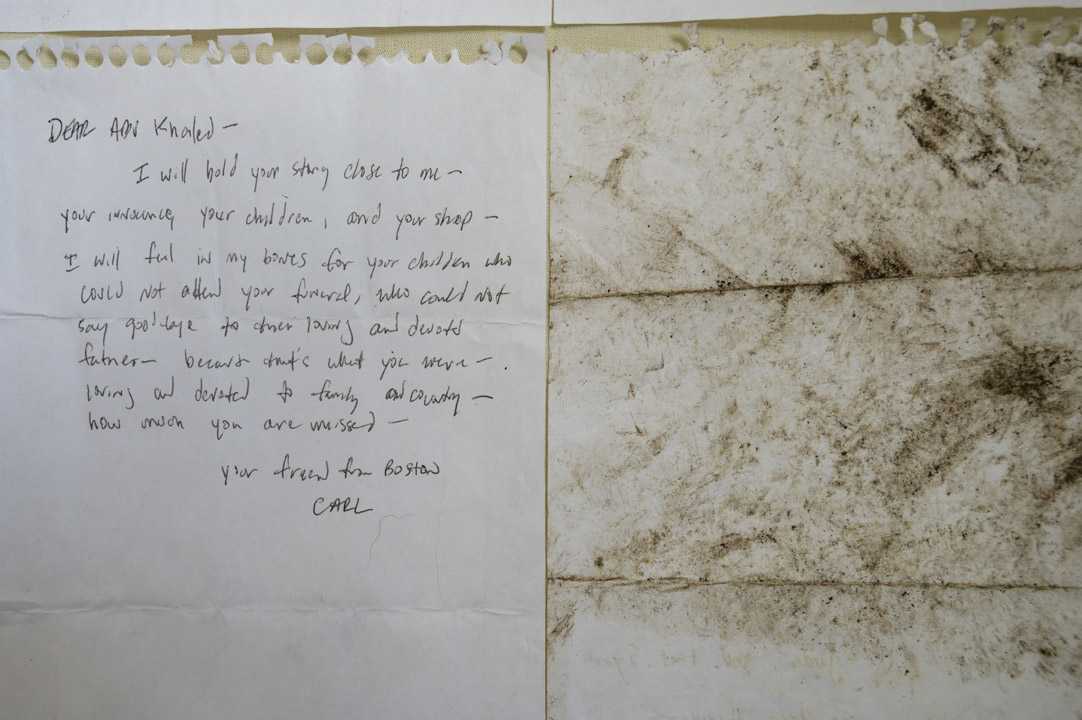 DEAR ABU Khaled –
I will hold your story close to me –
your innocence, your children, and your shop –
I will feel in my bones for your children who
could not attend your funeral, who could not
say goodbye to their loving and devoted
father – because that's what you were –
loving and devoted to family and country –
how much you are missed –
your friend from Boston
CARL